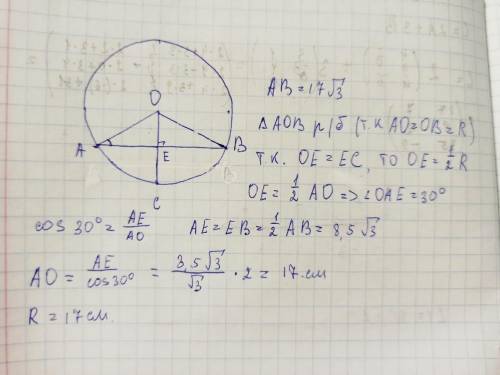 O
A
B
E
C
AB = 17√3
ΔAOB р/б (т.к AO=OB=R)
т.к. OE = EC, то OE = 1/2 R
OE = 1/2 AO => ∠OAE = 30°
cos 30° = AE/AO    AE = EB = 1/2 AB = 8,5√3
AO = AE/cos30° = 3,5√3/√3 · 2 = 17 см
R = 17 см.